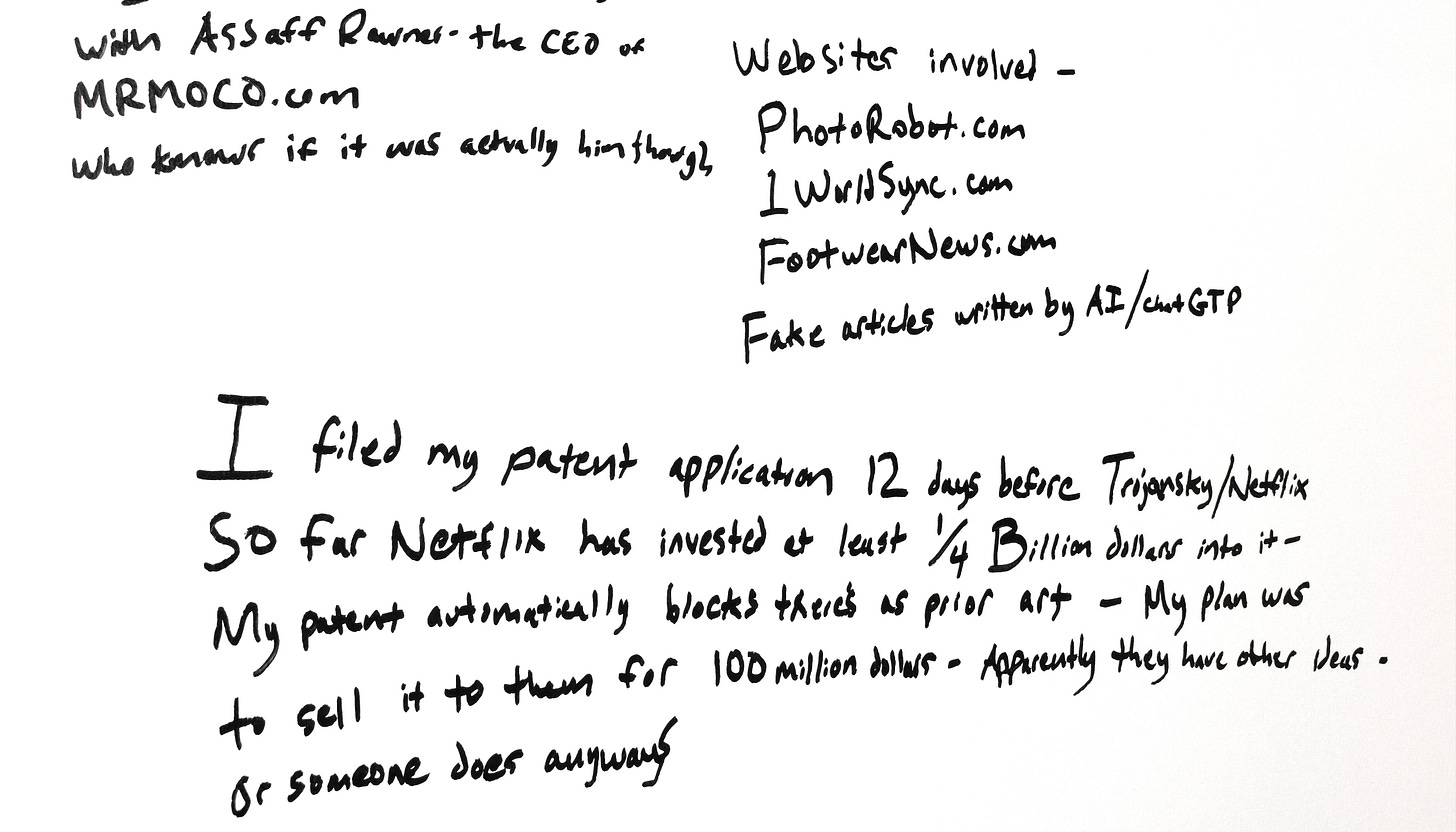 with Assaff Rawner - the CEO of
MRMOCO.com
who knows if it was actually him though
Websites involved -
PhotoRobot.com
1 WorldSync.com
FootwearNews.com
Fake articles written by AI/chatGTP
I filed my patent application 12 days before Trojansky/Netflix
So far Netflix has invested at least 1/4 Billion dollars into it -
My patent automatically blocks there's as prior art - My plan was
to sell it to them for 100 million dollars - Apparently they have other ideas -
or someone does anyways